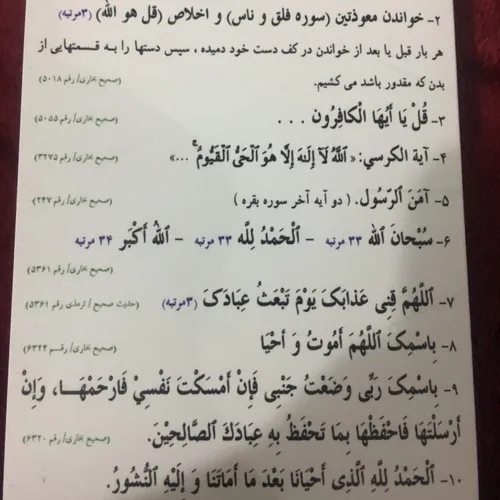 ۲- خواندن معوذتین (سوره فلق و ناس) و اخلاص (قل هو الله) (۳مرتبه)
هر بار قبل یا بعد از خواندن در کف دست خود دمیده ، سپس دستها را به قسمتهایی از
بدن که مقدور باشد می کشیم. (صحیح بخاری/ رقم ۵۰۱۸)
۳- قُلْ یَا أَیُّهَا الْکَافِرُون . . . (صحیح بخاری/ رقم ۵۰۵۵)
۴- آیة الکرسي: «ٱللَّهُ لَآ إِلَـٰهَ إِلَّا هُوَ ٱلْحَیُّ ٱلْقَیُّومُ ۚ ...» (صحیح بخاری/ رقم ۳۲۷۵)
۵- آمَنَ ٱلرَّسُول. ( دو آیه آخر سوره بقره ) (صحیح بخاری/ رقم ۲۴۷)
۶- سُبْحانَ ٱلله ۳۳ مرتبه - ٱلْحَمْدُ لِلَّه ۳۳ مرتبه - ٱللهُ أَکْبَر ۳۴ مرتبه
(صحیح بخاری/ رقم ۵۳۶۱)
۷- ٱللَّهُمَّ قِنِی عَذابَکَ یَوْمَ تَبْعَثُ عِبَادَکَ (۳مرتبه) (حدیث صحیح / ترمذی رقم ۵۳۶۱)
۸- بِاسْمِکَ ٱللَّهُمَّ أَمُوتُ وَ أَحْیَا (صحیح بخاری/ رقم ۶۳۲۴)
۹- بِاسْمِکَ رَبِّی وَضَعْتُ جَنْبِی فَإِنْ أَمْسَکْتَ نَفْسِیْ فَارْحَمْهَا، وَإِنْ
أَرْسَلْتَهَا فَاحْفَظْهَا بِمَا تَحْفَظُ بِهِ عِبَادَكَ الصَّالِحِیْنَ. (صحیح بخاری/ رقم ۶۳۲۰)
۱۰- ٱلْحَمْدُ لِلَّهِ ٱلَّذِی أَحْیَانَا بَعْدَ مَا أَمَاتَنَا وَ إِلَیْهِ ٱلنُّشُورُ.